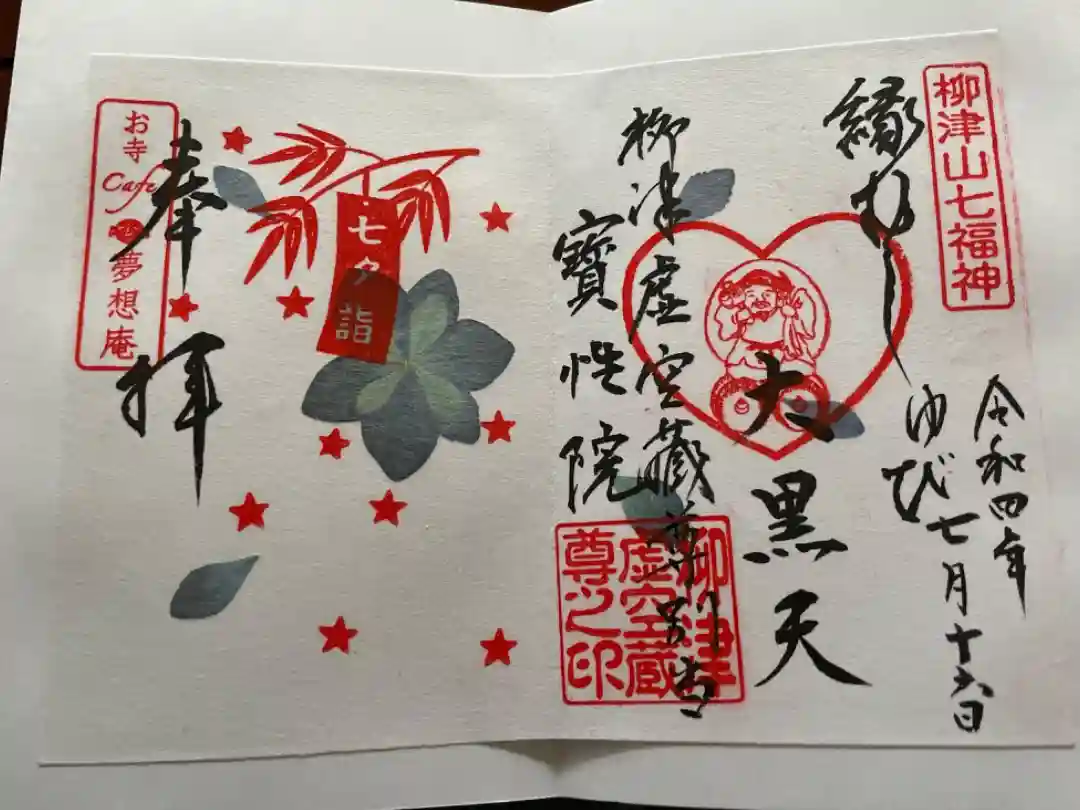 柳津山七福神
令和四年
七月十六日
縁
大黒天
柳津虚空藏尊別当
寳性院
柳津
虚空蔵
尊之印
七夕詣
奉拝
お寺Cafe夢想庵